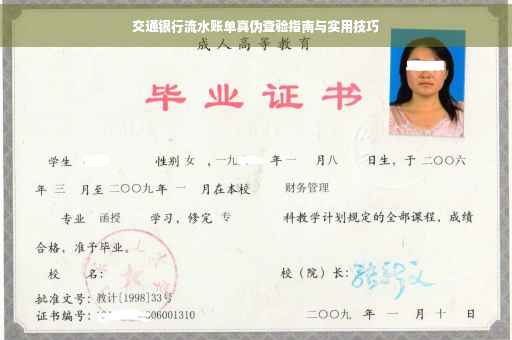 交通银行流水账单真伪查验指南与实用技巧
成人高等教育
毕业证书
学生 性别 女 ，一九 年 一 月八 日生，于 二〇〇六
年 三 月至 二〇〇九 年 一 月在本校 财务管理
专业 函授 学习，修完 专 科教学计划规定的全部课程，成绩
合格，准予毕业。
校 名： 校（院）长：
批准文号：教计[1998]33号
证书编号： 06001310 二〇〇九 年 一 月 十 日